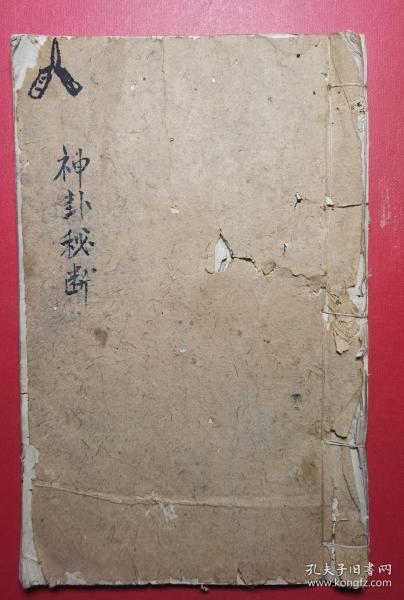 神卦秘断
孔夫子旧书网
www.kongfz.com